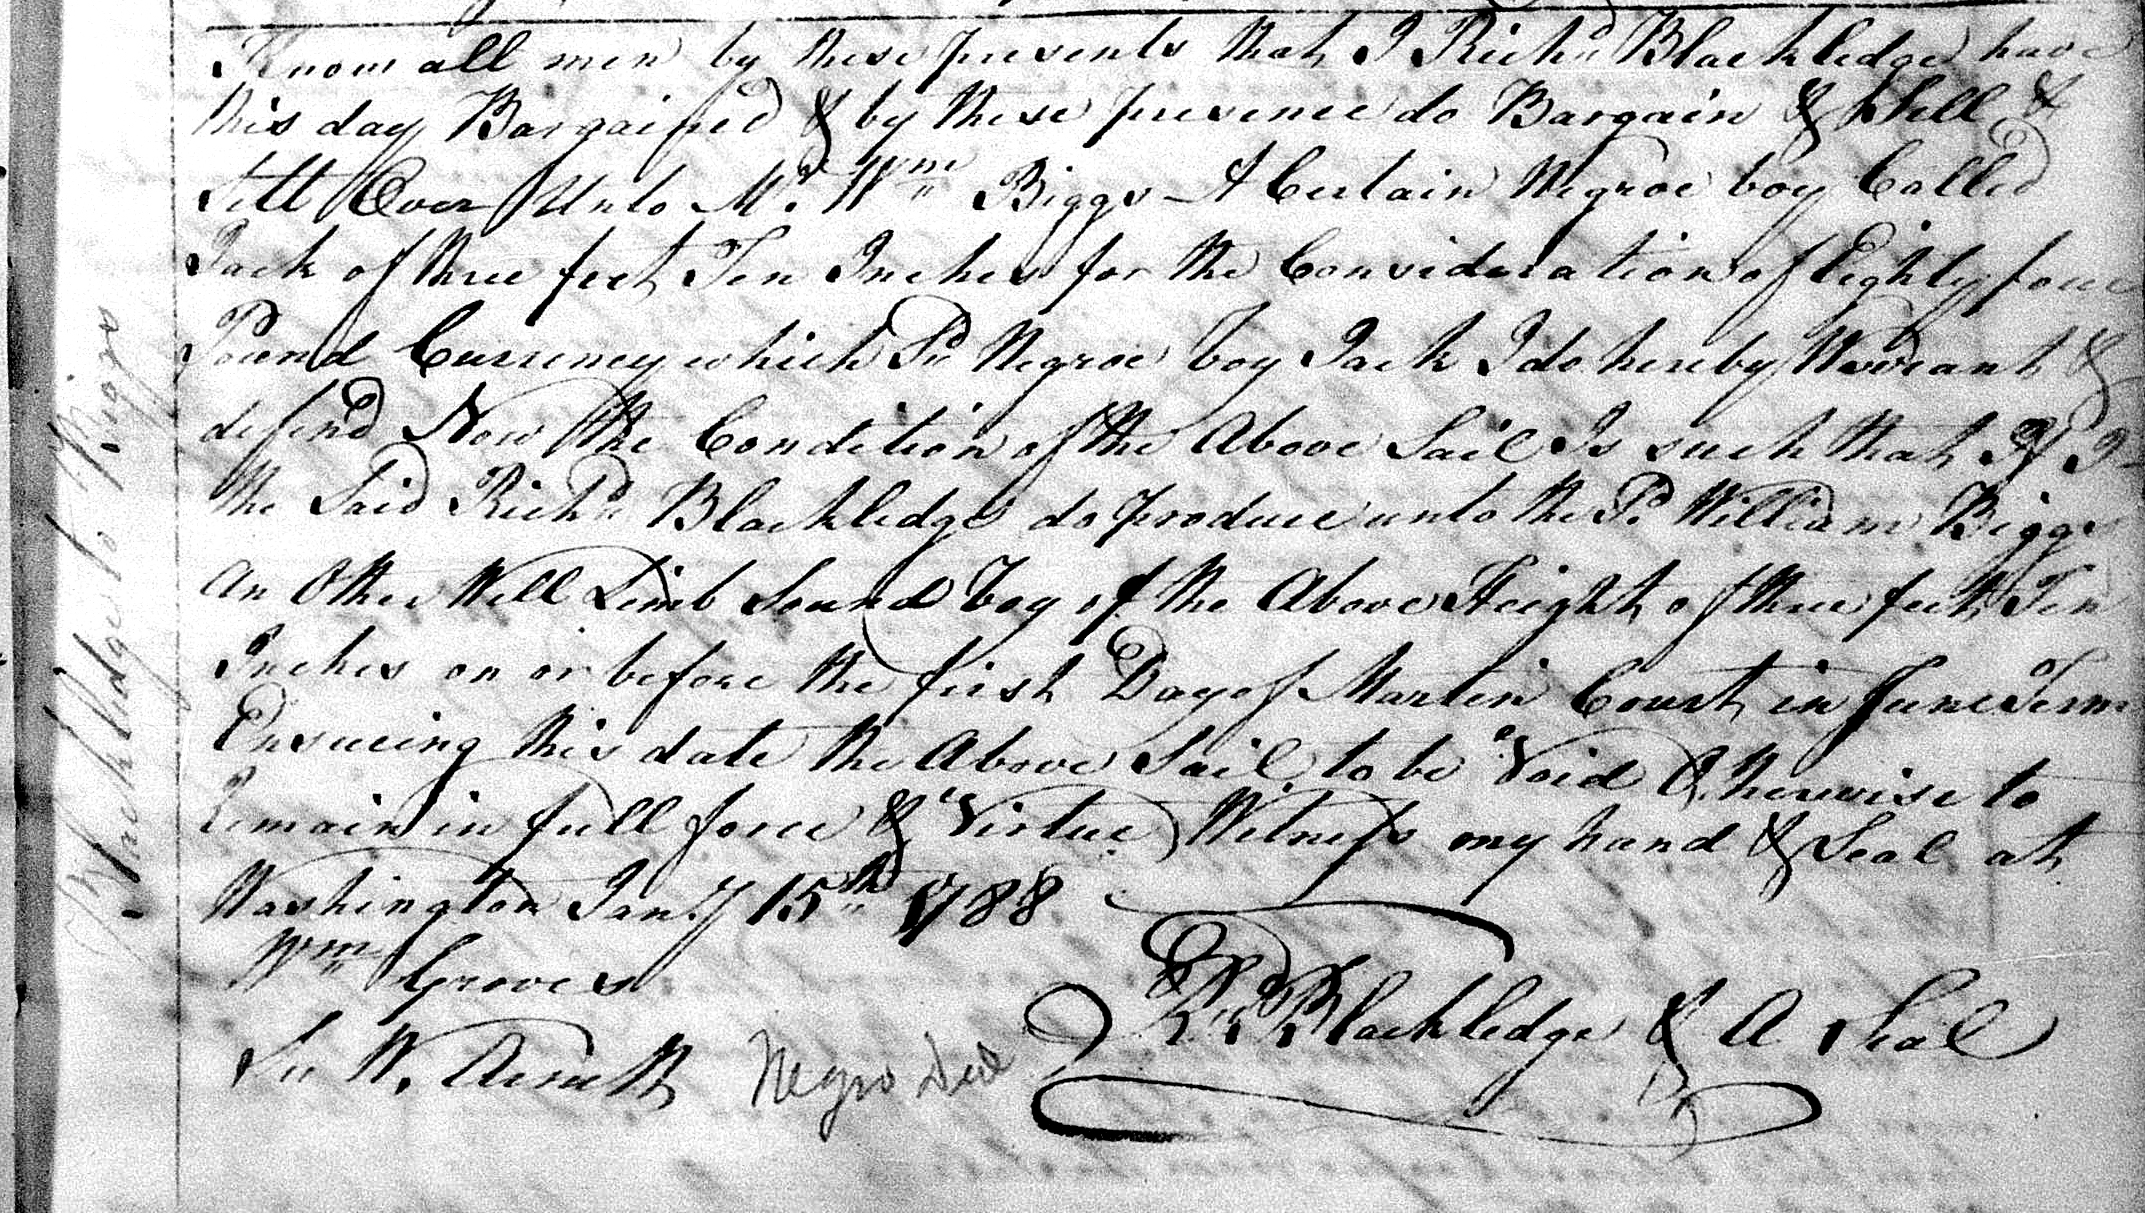 Know all men by these presents that I Richd Blackledge have
this day Bargained & by these presence do Bargain & Sell &
Sett Over Unto Mr. Wm Biggs A Certain Negroe boy Called
Jack of three feet Ten Inches for the Consideration of Eighty four
Pound Currency which Sd Negroe boy Jack I do hereby Warrant &
defend Now the Condition of the Above Sail Is such that If I
the Said Richd Blackledge do produce unto the Sd William Biggs
An Other Well Limb Sound boy of the Above Height of three feet Ten
Inches on or before the first Day of Martin Court in June Term
Ensueing this date the Above Sail to be Void Otherwise to
Remain in full force & Virtue Witness my hand & Seal at
Washington Jany 15th 1788
Wm Groves
Richd Blackledge & A Seal
W.
Negro Deed
Blackledge to Biggs